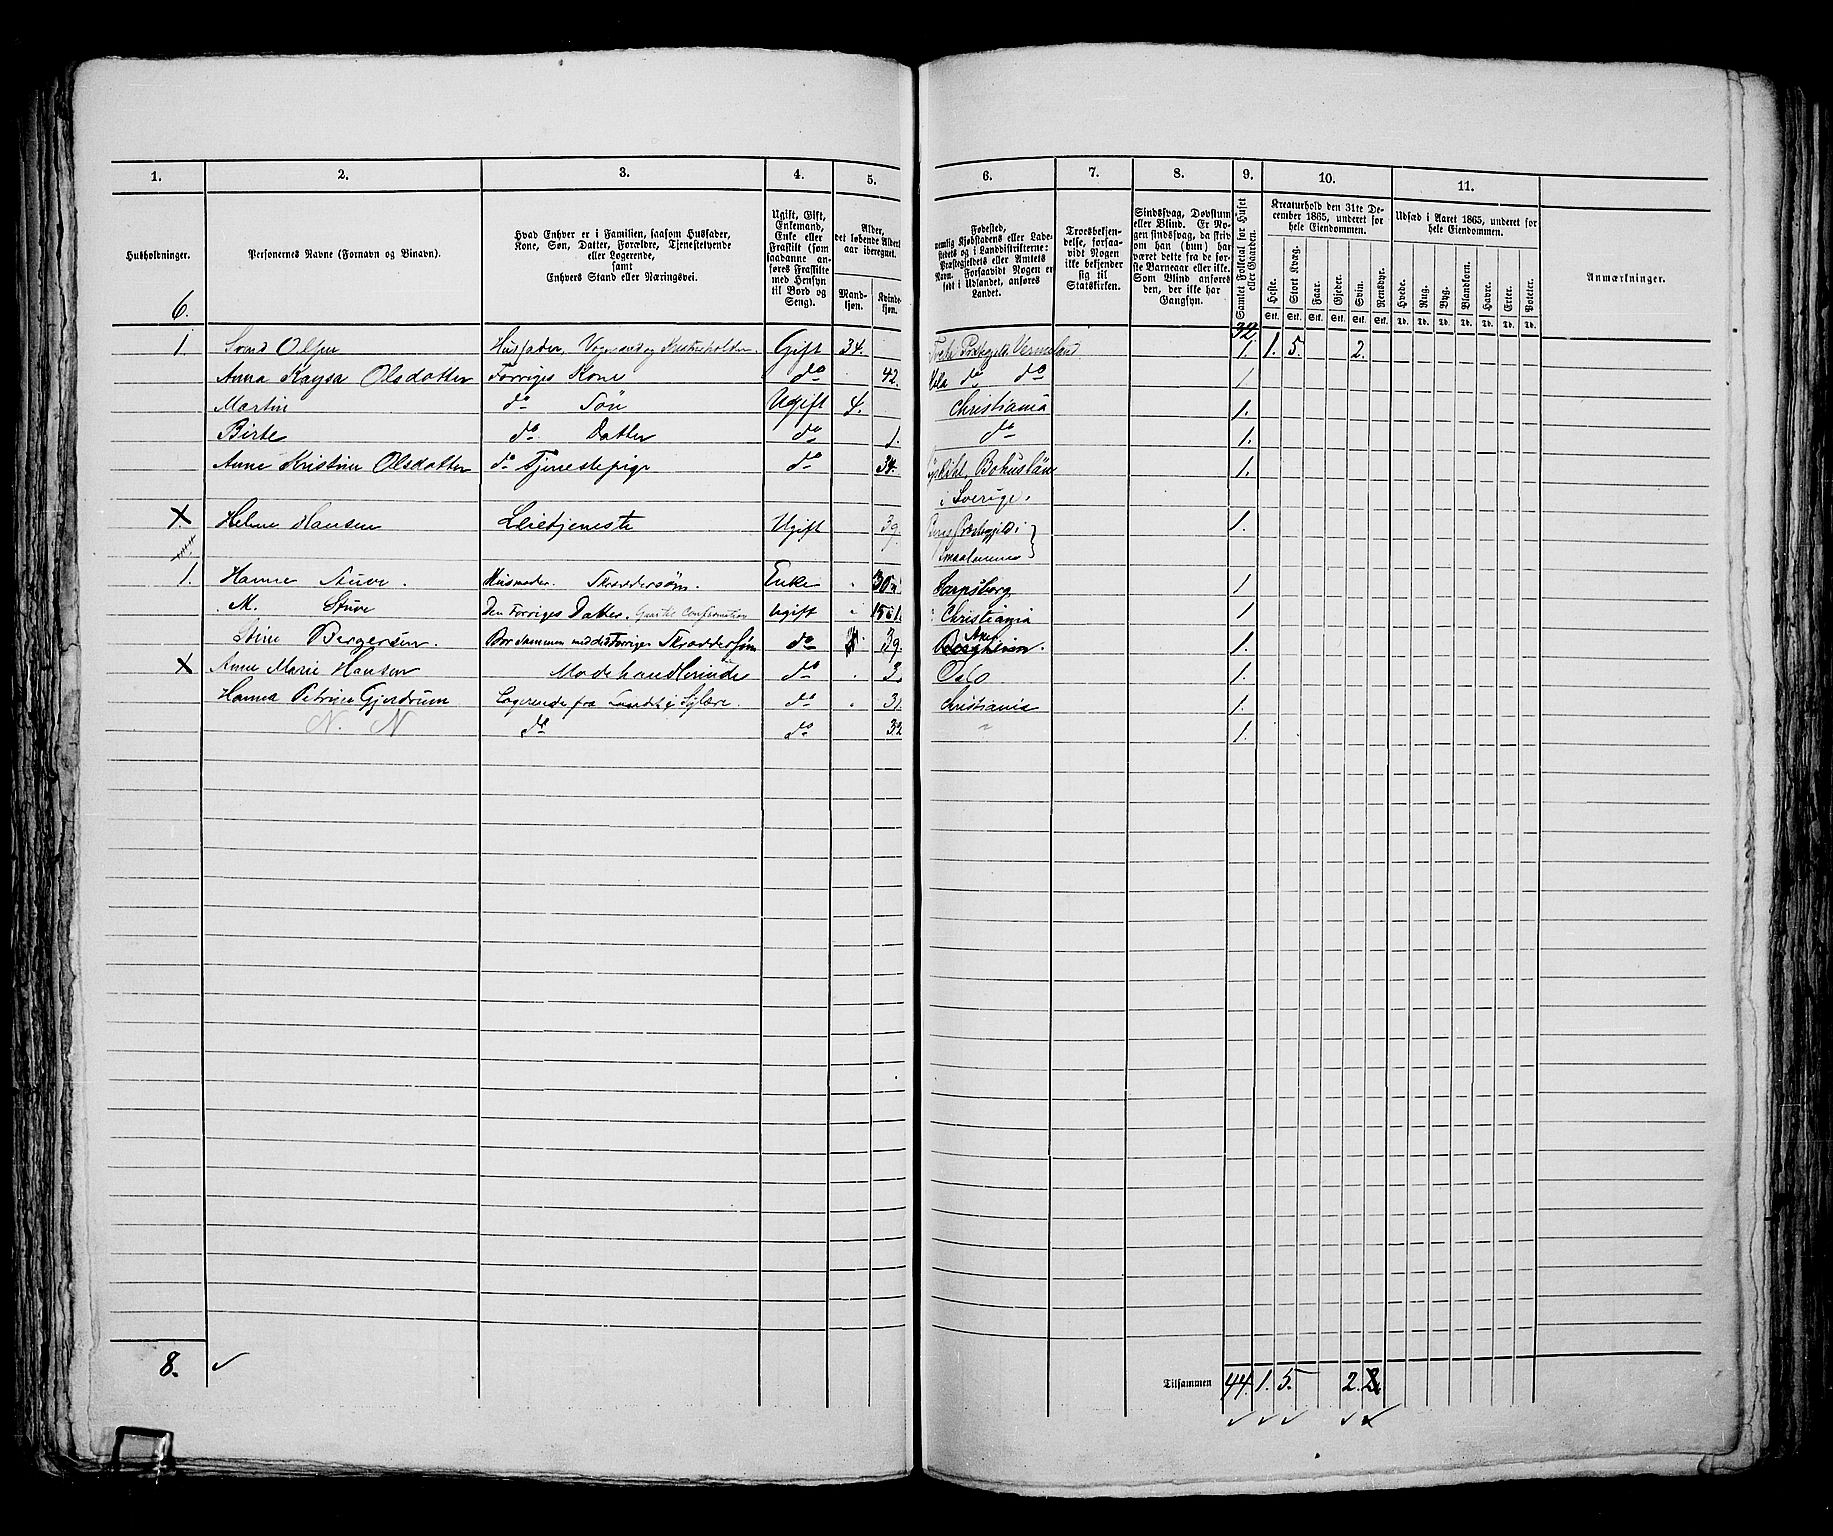 1. 2. 3. 4. 5. 6. 7. 8. 9. 10. 11.
Husholdninger.
Personernes Navne (Fornavn og Binavn).
Hvad Enhver er i Familien, saasom Husfader,
Kone, Søn, Datter, Forældre, Tjenestetyende
eller Logerende,
samt
Enhvers Stand eller Næringsvei.
Ugift, Gift,
Enkemand,
Enke eller
Fraskilt (som
saadanne an-
føres Fraskilte
med Hensyn
til Bord og
Seng).
Alder,
det løbende Alders-
aar iberegnet.
Mand-
kjøn.
Kvinde-
kjøn.
Fødested,
nemlig Kjøbstadens eller Lade-
stedets og i Landdistrikterne:
Præstegjeldets eller Amtets
Navn. Forsaavidt Nogen er
født i Udlandet, anføres
Landet.
Troesbekjen-
delse, forsaa-
vidt Nogen
ikke bekjender
sig til
Statskirken.
Sindssvag, Døvstum
eller Blind. Er No-
gen sindssvag, da skriv
om han (hun) har
været dette fra de før-
ste Barneaar eller ikke.
Som Blind anføres
den, der ikke har
Gangsyn.
Samlet Folketal for Huset
eller Gaarden.
Kreaturhold den 31te De-
cember 1865, underet for
hele Eiendommen.
Heste. Stort Kvæg. Faar. Gjeder. Svin. Rensdyr.
Stk. Stk. Stk. Stk. Stk. Stk.
Udsæd i Aaret 1865, underet for
hele Eiendommen.
Hvede. Rug. Byg. Blandkorn. Havre. Erter. Poteter.
Td. Td. Td. Td. Td. Td. Td.
Anmærkninger.
6. 32
1. Svend Olsen Husfader, Vognmand og Kreturholder. Gift 34. Præstegjeld Vermeland 1. 1. 5. 2.
Anna Kaysa Olsdatter Forriges Kone do 42. do do 1
Martin do Søn Ugift 4. Christiania 1.
Birte do. Datter do 1. do 1.
Anne Kristine Olsdatter do Tjenestepige do 34. Bohuslän 1.
i Sverige.
X Helene Hansen Leietjeneste Ugift 39 Præstegjeld i 1.
Smaalenene
1. Hanne Husmoder. Skræddersøm. Enke 30 Sarpsborg 1
M. Stuve Den Forriges Datter. Ugift 15 Christiania 1
Stine Bergersen. Bor sammen med de Forrige Skræddersøm do 39. Aker 1.
X Anne Marie Hansen Modehandlerinde do 3 Oslo 1.
Hanna Petrine Gjerdrum Logerende fra do 31 Christiania 1.
N. N do do 32 " 1.
8. ✓
Tilsammen 44. 1. 5. 2.